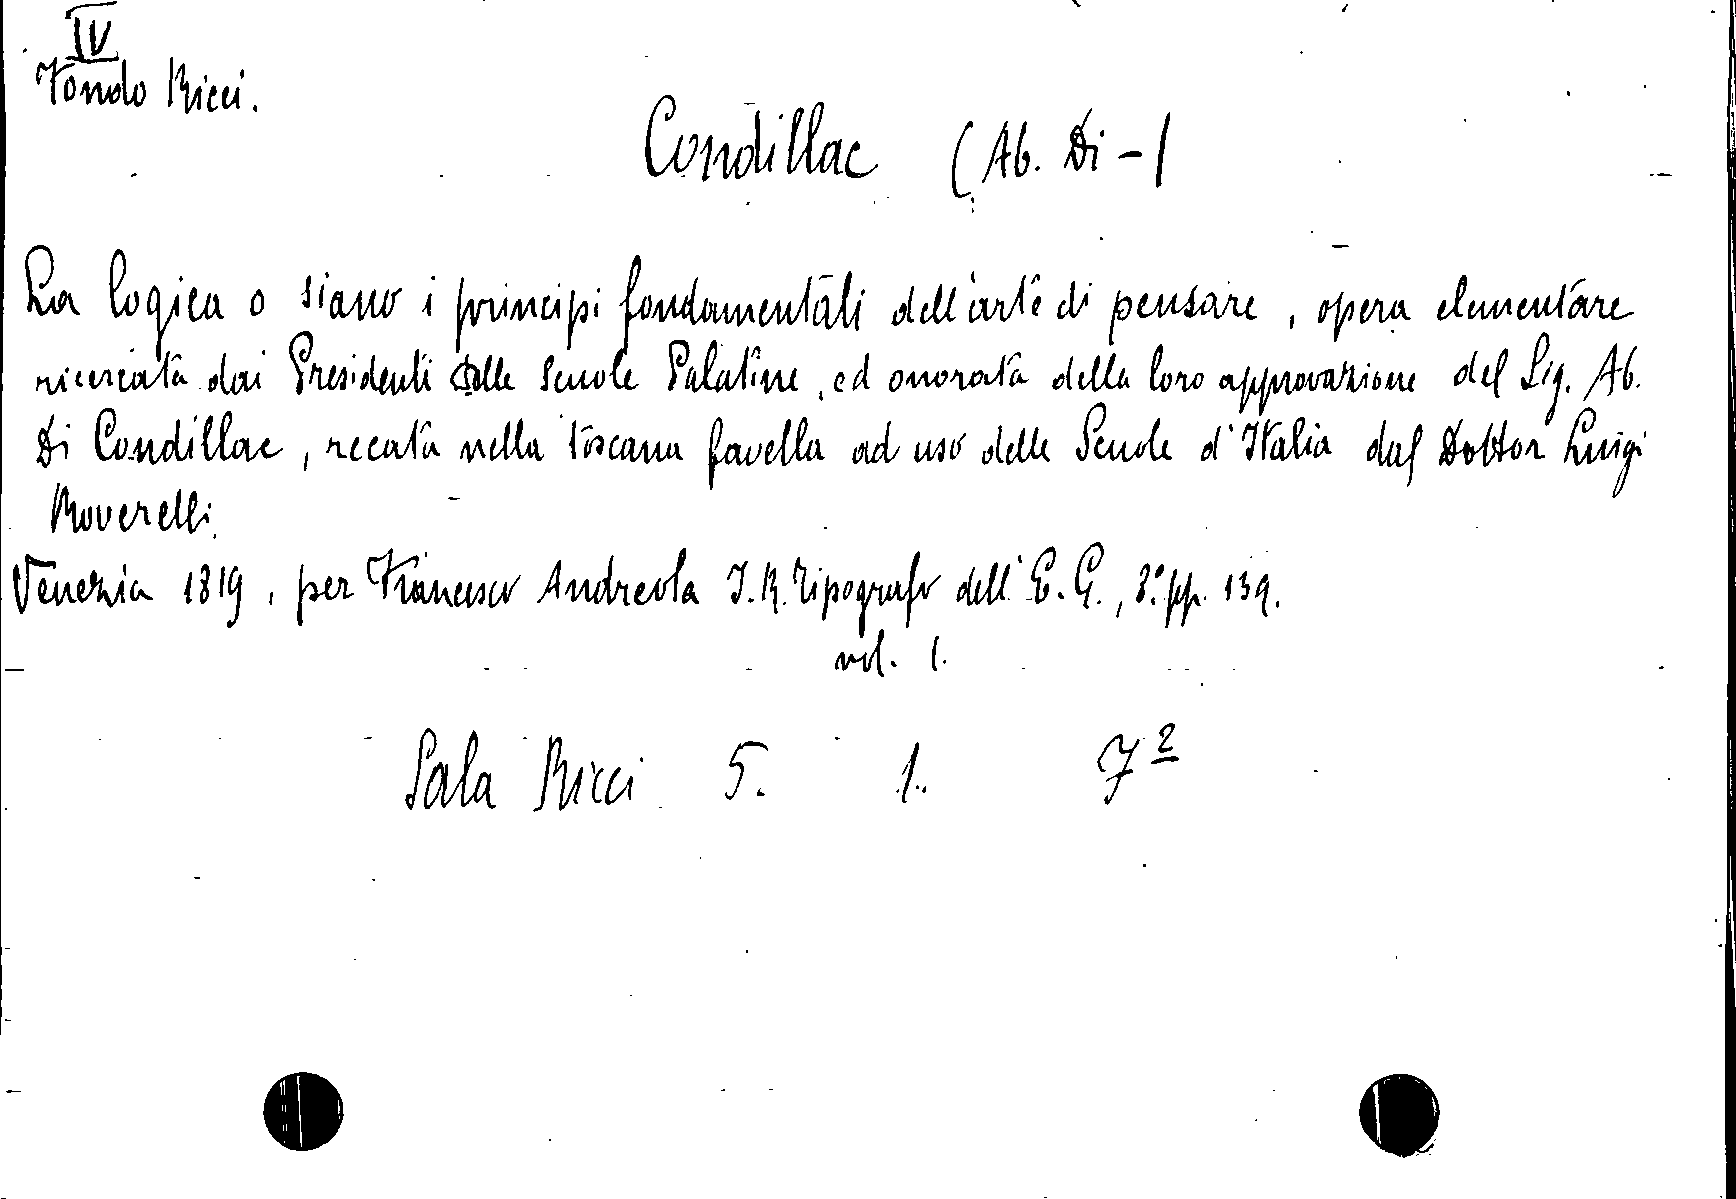 IV
Fondo Ricci.
Condillac (Ab. Di -)
La logica o siano i principi fondamentali dell'arte di pensare, opera elementare
ricercata dai Presidenti delle Scuole Palatine, ed onorata della loro approvazione del Sig. Ab.
Di Condillac, recata nella toscana favella ad uso delle Scuole d'Italia dal Dottor Luigi
Roverelli.
Venezia 1819, per Francesco Andreola I. R. Tipografo dell' E. G., 8° pp. 139.
vol. 1.
Sala Ricci 5. 1. 7²